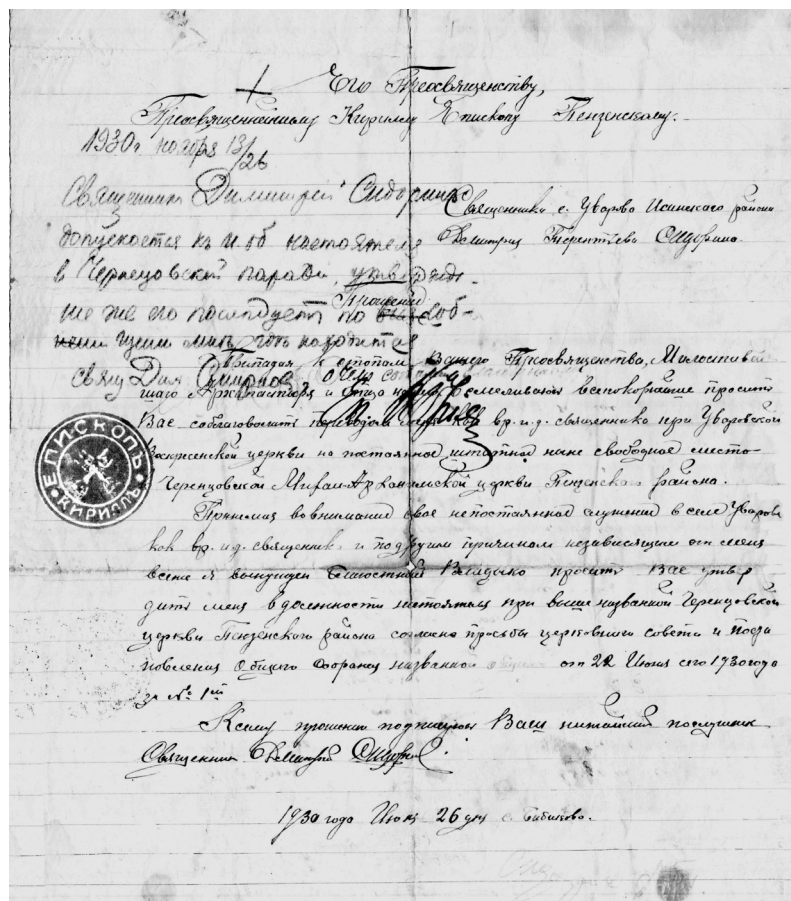 Его Преосвященству,
Преосвященнейшему Кирилу Епископу Пензенскому.
1930 г ноября 13/26
Священник Димитрий Сидорин
допускается къ и. об настоятеля
в Чернецовский
утвержде-
ние же его последует по
Прошение
Священника с. Уварово Иссинскаго района
Димитрия Терентьева Сидорина.
свящ Дим.
ЕПИСКОПЪ КИРИЛЛЪ
Припадая к стопам Вашего Преосвященства, Милостивей-
шаго Архипастыря и Отца осмеливаюсь всепокорнейше просить
Вас соблаговолить вр. и. д. священника при Уваровской
Воскресенской церкви на постоянное штатное ныне свободное место
Черенцовской Михаило-Архангельской церкви Пензенского района.
Принимая во внимание свое непостоянное служение в селе Уварове
как вр. и. д. священник и по другим причинам независящим от меня
я вынужден Милостивый Владыко просить Вас утвер
дить меня в должности настоятеля при выше названной Черенцовской
церкви Пензенского района согласно просьбы церковного совета и поста
новления общаго собрания названной от 22 Июня сего 1930 года
за № 1й
К сему прошению подписуюсь Ваш нижайший послушник
Священник Димитрий Сидорин
1930 года Июня 26 дня с. Бибиково.